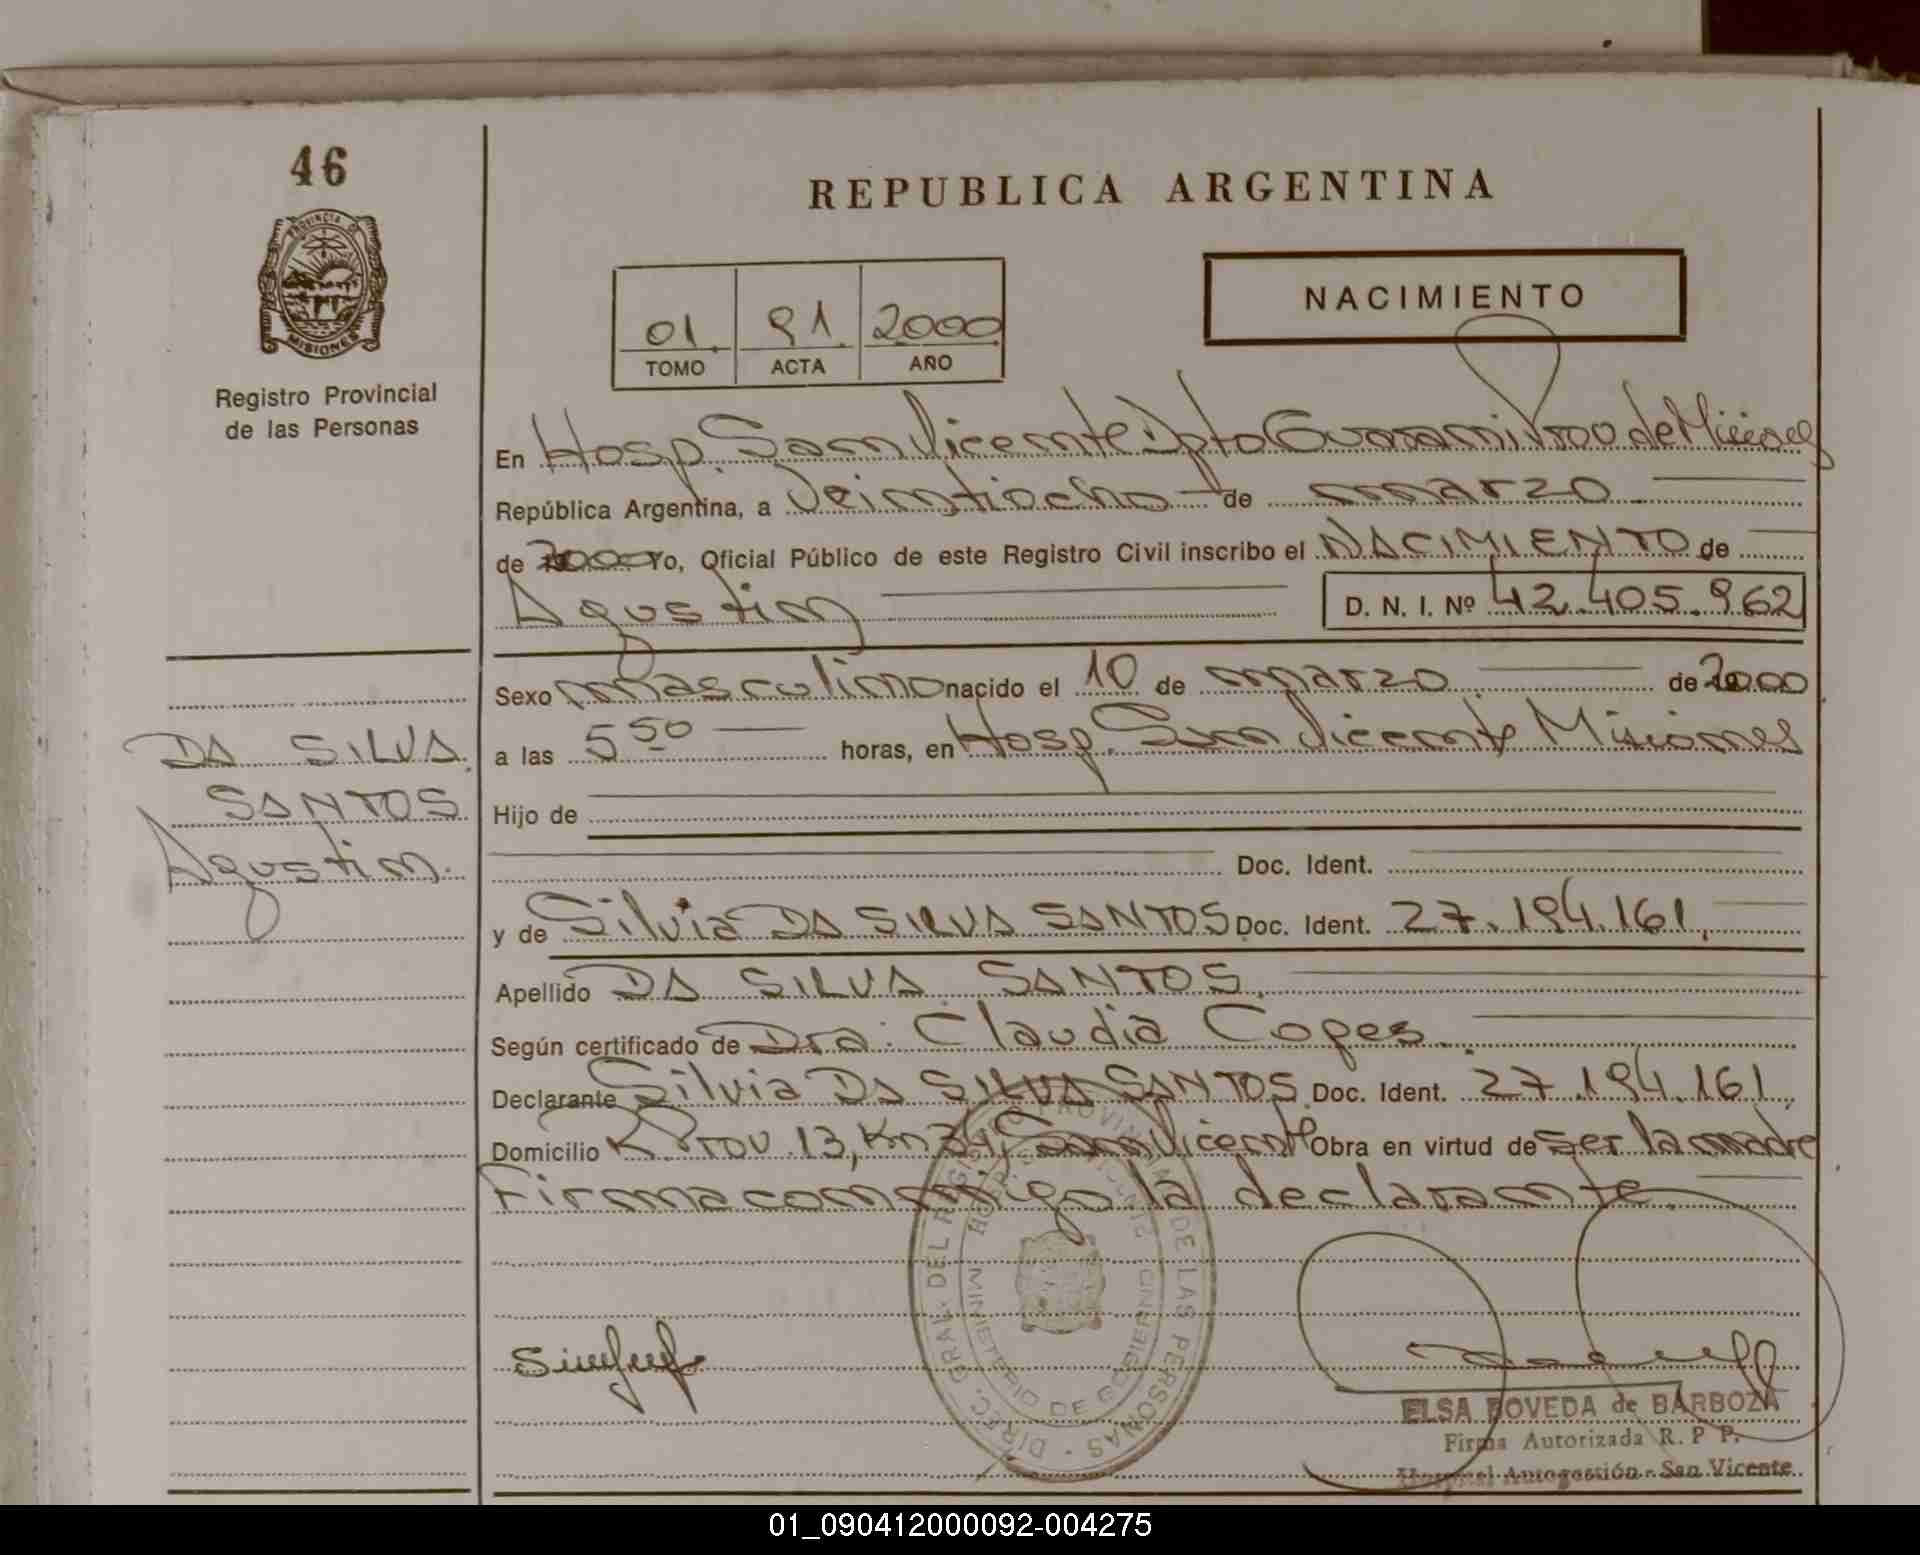 46
REPUBLICA ARGENTINA
PROVINCIA DE
MISIONES
Registro Provincial
de las Personas
01. 91. 2000
TOMO ACTA AÑO
NACIMIENTO
En Hosp. San Vicente Dpto Guarani Prov de Misiones
República Argentina, a Veintiocho de marzo
de 2000 Yo, Oficial Público de este Registro Civil inscribo el NACIMIENTO de
Agustin D. N. I. Nº 42.405.962
Sexo masculino nacido el 10 de marzo de 2000
a las 5 50 horas, en Hosp. San Vicente Misiones
Hijo de
Doc. Ident.
y de Silvia DA SILVA SANTOS Doc. Ident. 27.194.161.
Apellido DA SILVA SANTOS.
Según certificado de Dra: Claudia Copes.
Declarante Silvia DA SILVA SANTOS Doc. Ident. 27.194.161.
Domicilio R. Prov. 13, Km 34, San Vicente Obra en virtud de ser la madre
Firma conmigo la declarante.
DA SILVA
SANTOS
Agustin.
DIREC. GRAL. DEL REGISTRO PROVINCIAL DE LAS PERSONAS
MINISTERIO DE GOBIERNO
ELSA BOVEDA de BARBOZA
Firma Autorizada R. P P.
Hospital Autogestión - San Vicente
01_090412000092-004275